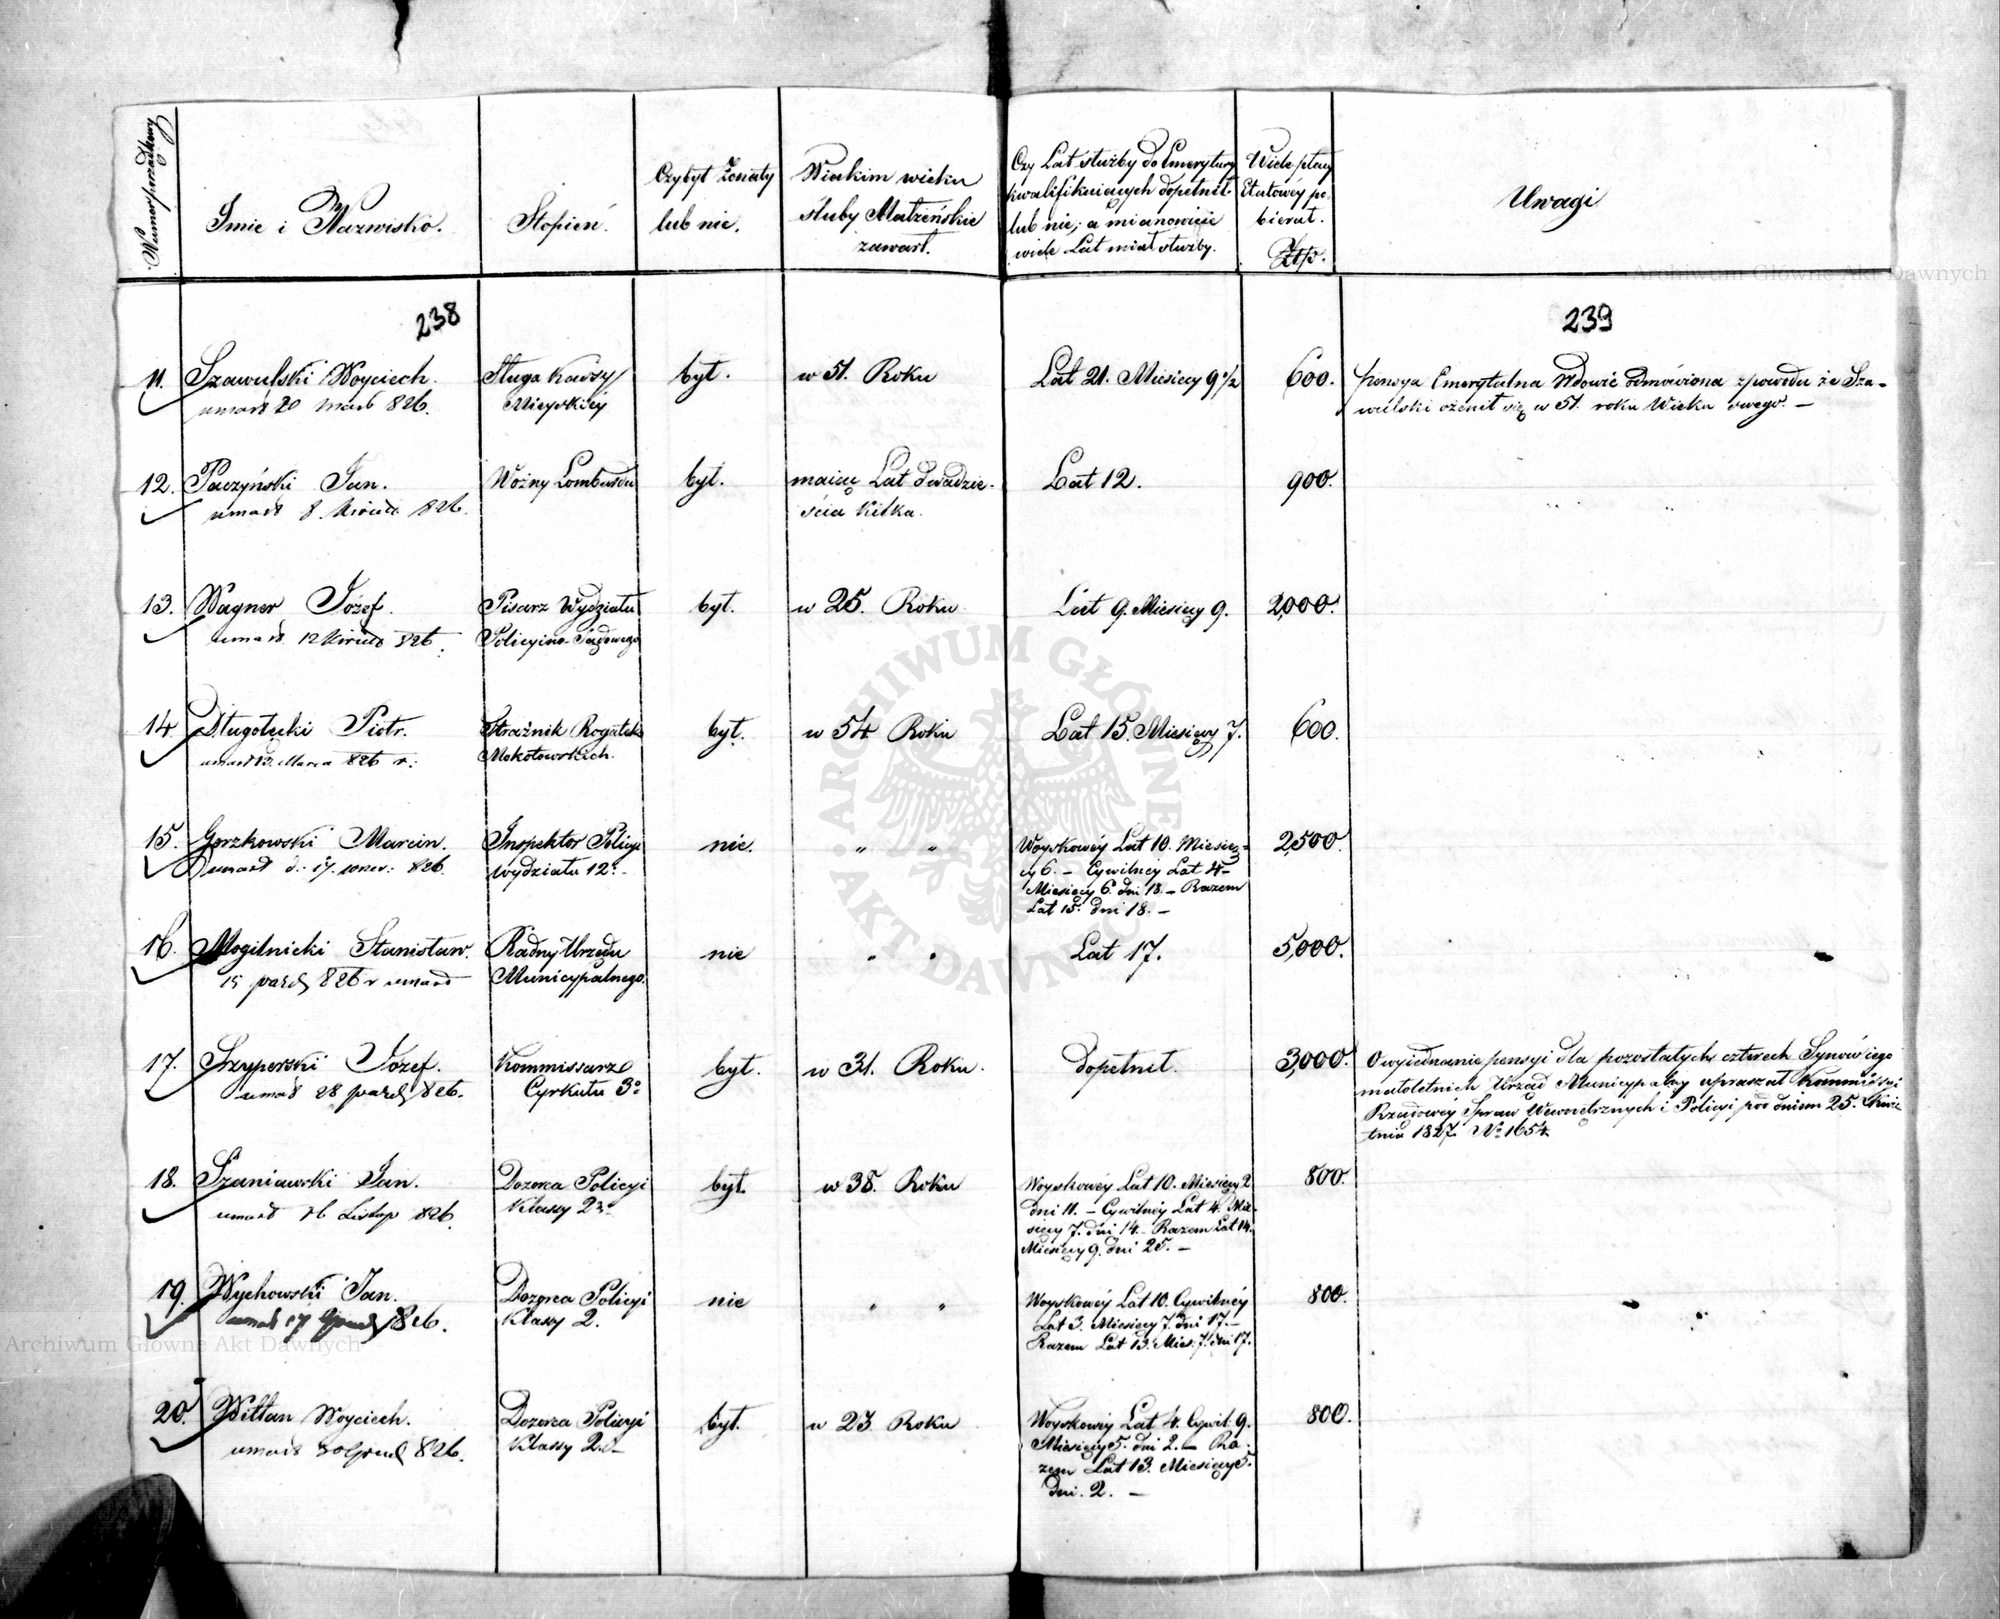 Numer porządkowy
Imie i Nazwisko.
Stopień.
Czy był Żonaty
lub nie.
W iakim wieku
śluby Małżeńskie
zawarł.
Czy Lat służby do Emerytury
kwalifikuiących dopełnił
lub nie; a mianowicie
wiele Lat miał służby.
Wiele płacy
Etatowéy po-
bierał.
Złp.
Uwagi
238
239
11. Szawulski Woyciech. Sługa Kassy był. w 51. Roku Lat 21. Miesięcy 9 1/2 600. pensya Emerytalna Wdowie odmówiona z powodu że Sza-
umarł 20 826. Mieyskiéy wulski ożenił się w 51. roku Wieku swego. —
12. Paczyński Jan. Woźny Lombardu był. maiąc Lat dwadzie- Lat 12. 900.
umarł 8 Kwiet. 826. ścia kilka.
13. Wagner Józef. Pisarz Wydziału był. w 25. Roku Lat 9. Miesięcy 9. 2,000.
umarł 12 Kwiet 826. Policyino-Sądowego
14 Długołęcki Piotr. Strażnik Rogatek był. w 54 Roku Lat 15. Miesięcy 7. 600.
umarł Marca 826 r: Mokotowskich.
15. Gorzkowski Marcin. Inspektor Policyi nie. „ „ Woyskowéy Lat 10. Miesię- 2,500.
umarł d: 17. 826. wydziału 12o cy 6. — Cywilnéy Lat 4-
Miesięcy 6. dni 18. — Razem
Lat 15. dni 18. —
16. Mogilnicki Stanisław. Radny Urzędu nie „ „ Lat 17. 5,000.
15 paźdz 826 r umarł Municypalnego.
17. Szyperski Józef. Kommissarz był. w 31. Roku. dopełnił. 3,000. O wyiednanie pensyi dla pozostałych czterech Synów iego
umarł 28 paźdz 826. Cyrkułu 3o małoletnich Urząd Municypalny upraszał Kommissyi
Rządowéy Spraw Wewnętrznych i Policyi pod dniem 25. Kwie
tnia 1827. No 1654.
18. Szaniawski Jan. Dozorca Policyi był. w 38. Roku Woyskowéy Lat 10. Miesięcy 2 800.
umarł 26 Listop 826. Klassy 2o dni 11. — Cywilnéy Lat 4. Mie-
sięcy 7. dni 14. — Razem Lat 14.
Miesięcy 9. dni 25. —
19. Wychowski Jan. Dozorca Policyi nie „ „ Woyskowéy Lat 10. Cywilnéy 800.
umarł 17 Grud 826. Klassy 2. Lat 3. Miesięcy 7. dni 17. —
Razem Lat 13. Mies. 7. dni 17.
20. Wittan Woyciech. Dozorca Policyi był. w 23 Roku Woyskowéy Lat 4. Cywil. 9. 800.
umarł 20 Grud 826. Klassy 2o Miesięcy 5. dni 2. — Ra-
zem Lat 13. Miesięcy 5.
dni. 2. —
ARCHIWUM GŁÓWNE AKT DAWNYCH
Archiwum Główne Akt Dawnych
Archiwum Główne Akt Dawnych